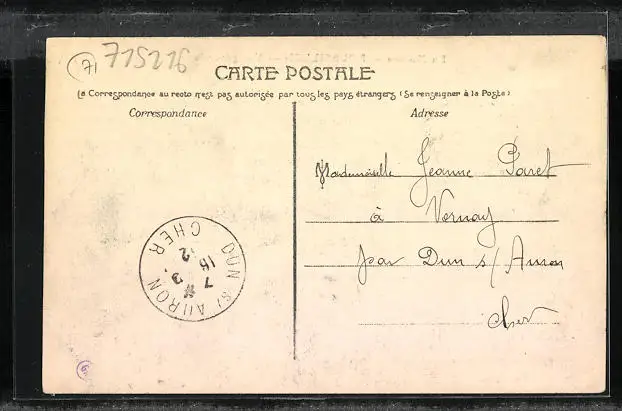 71
715216
CARTE POSTALE
La Correspondance au recto n'est pas autorisée par tous les pays étrangers (Se renseigner à la Poste)
Correspondance
Adresse
Mademoiselle Jeanne Paret
à Vernay
par Dun s/ Auron
Cher
DUN S/ AURON
CHER